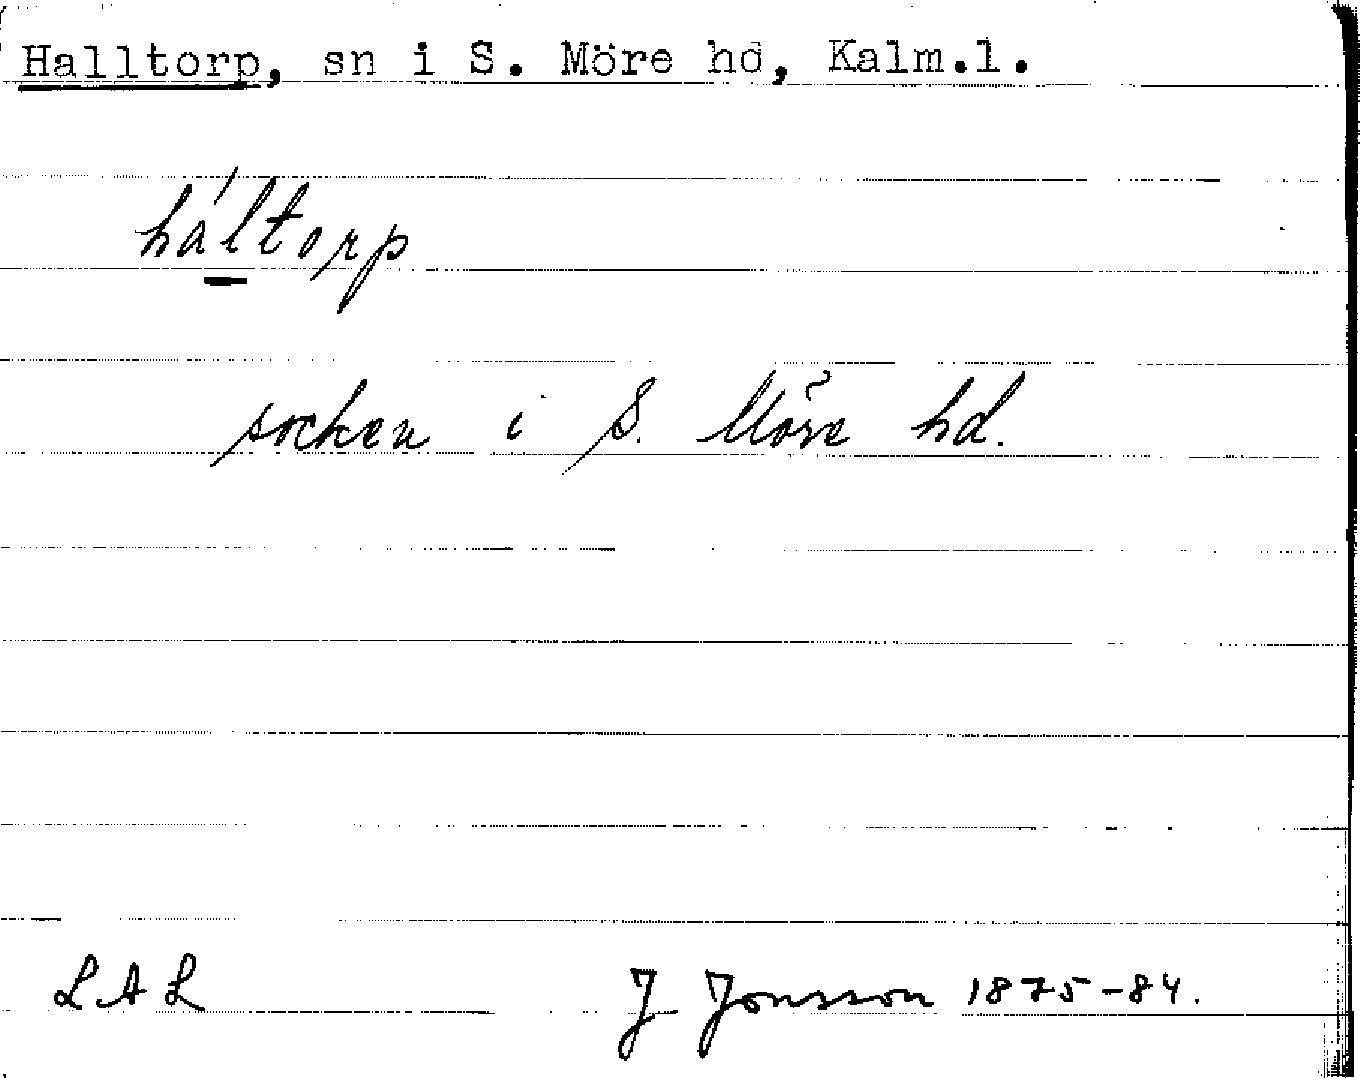 Halltorp, sn i S. Möre hd, Kalm.l.
háltorp
socken i S. Möre hd.
LAL
J Jonsson 1875-84.